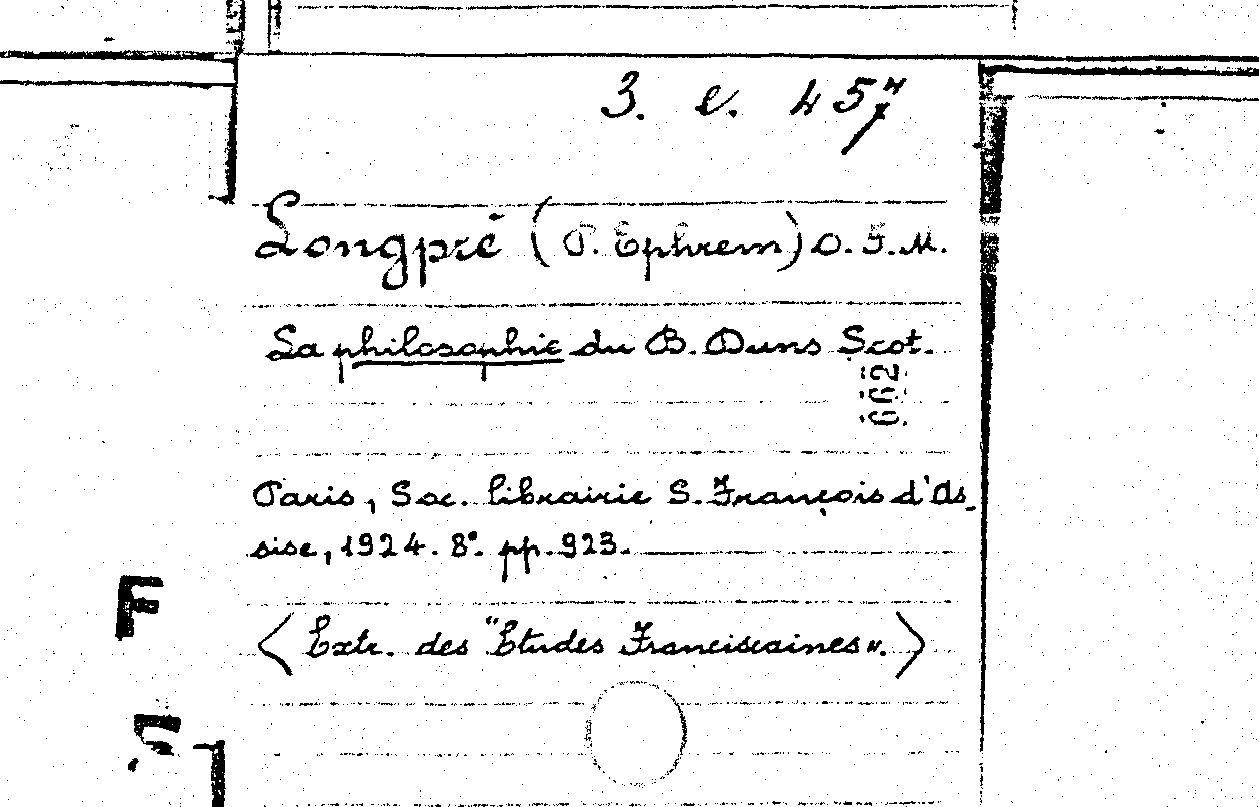 3. e. 457
Longpré (P. Ephrem) O.F.M.
La philosophie du B. Duns Scot.
662
Paris, Soc. librairie S. François d'As-
sise, 1924. 8°. pp. 923.
F
<Extr. des "Etudes Franciscaines".>
S